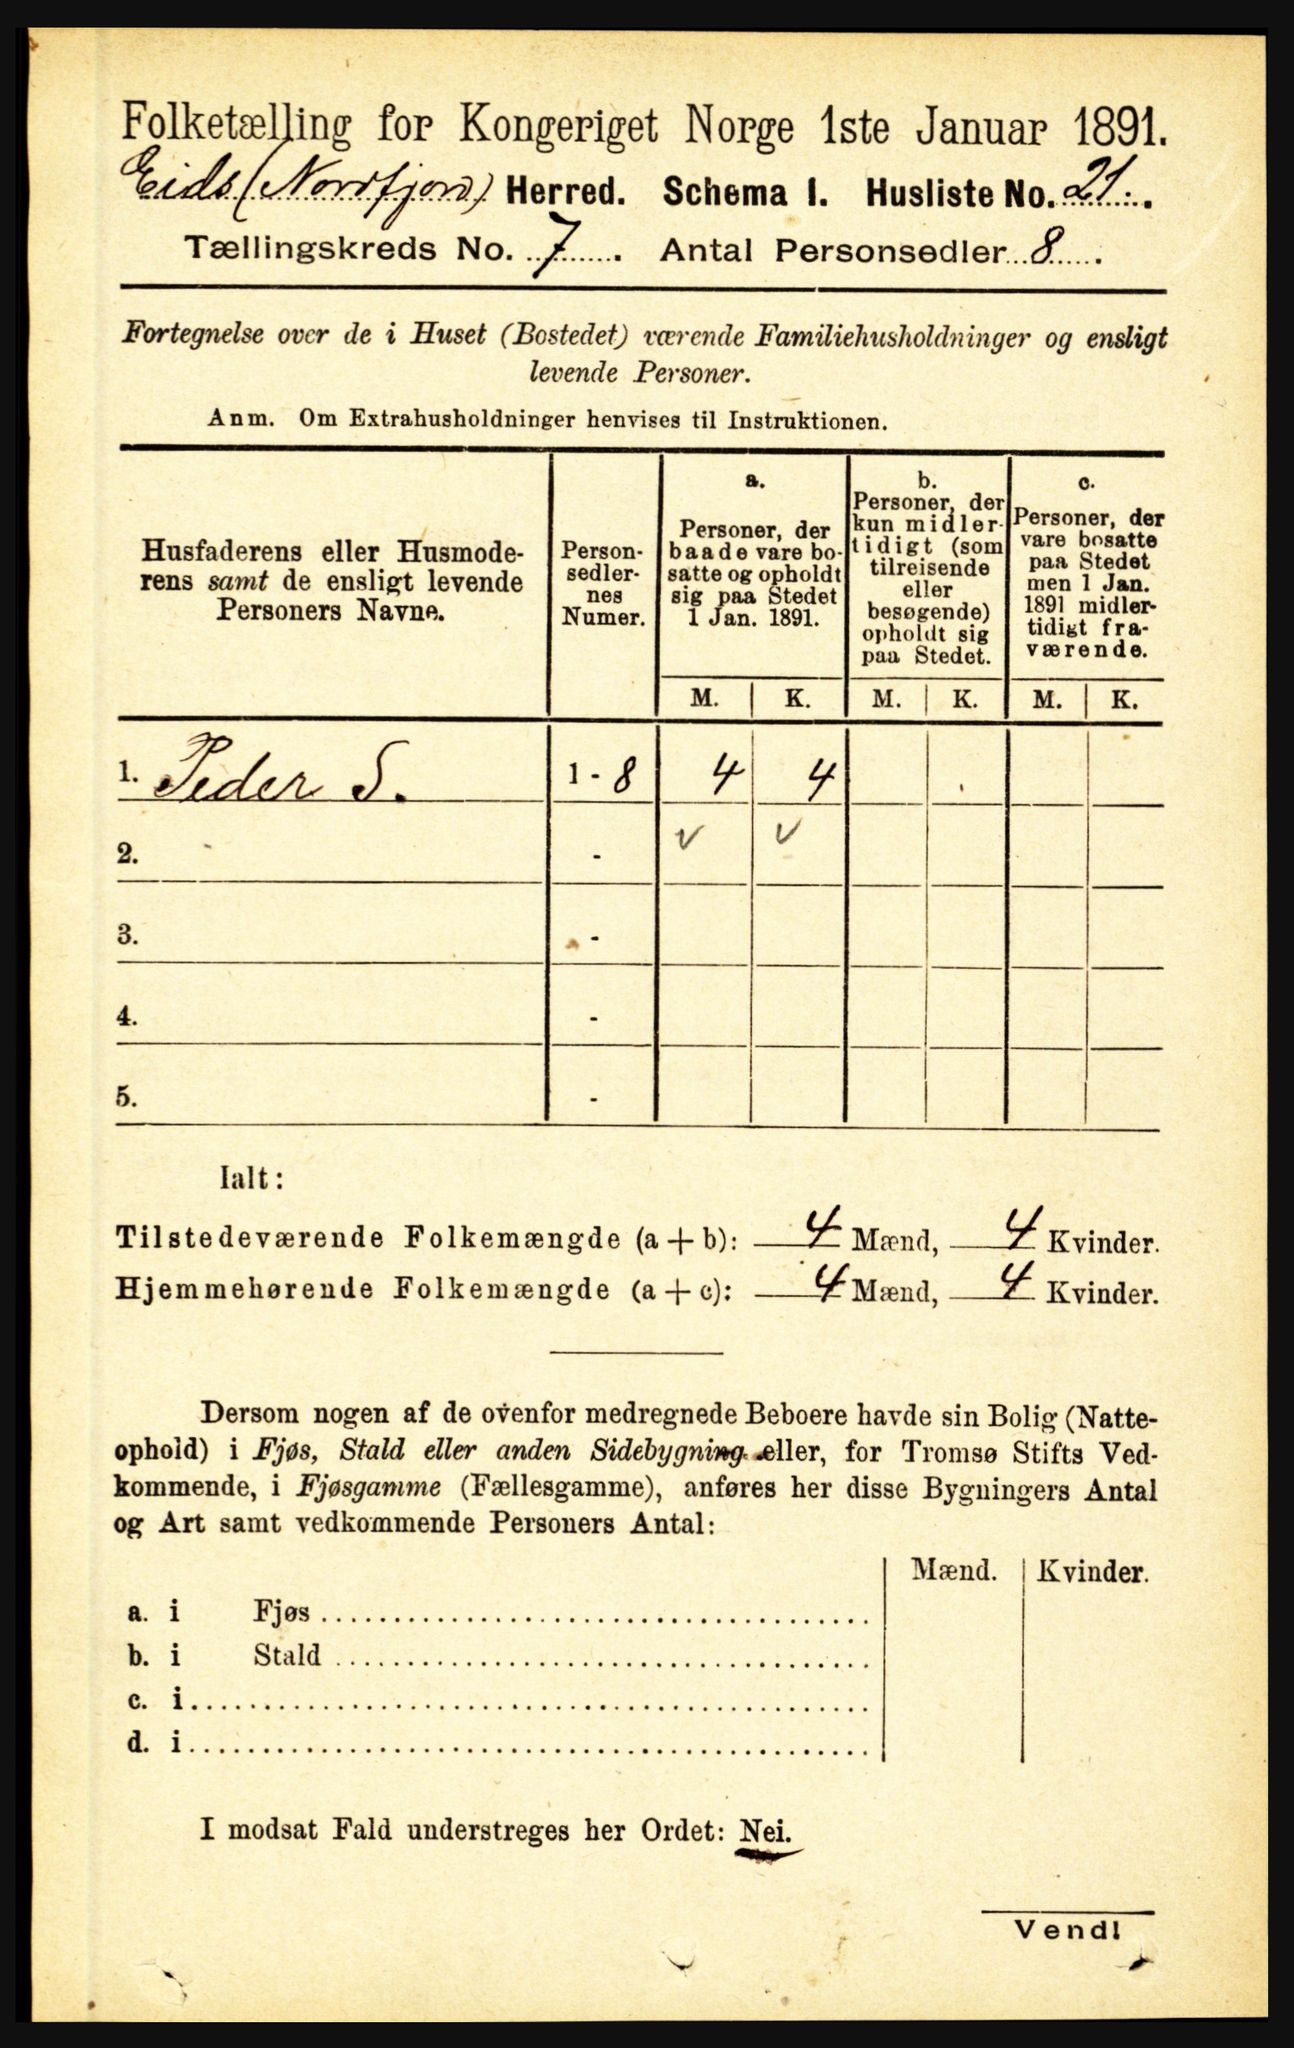 Folketælling for Kongeriget Norge 1ste Januar 1891.
Eids (Nordfjord) Herred. Schema I. Husliste No. 21.
Tællingskreds No. 7. Antal Personsedler 8.
Fortegnelse over de i Huset (Bostedet) værende Familiehusholdninger og ensligt
levende Personer.
Anm. Om Extrahusholdninger henvises til Instruktionen.
Husfaderens eller Husmode-
rens samt de ensligt levende
Personers Navne.
Person-
sedler-
nes
Numer.
a.
Personer, der
baade vare bo-
satte og opholdt
sig paa Stedet
1 Jan. 1891.
b.
Personer, der
kun midler-
tidigt (som
tilreisende
eller
besøgende)
opholdt sig
paa Stedet.
c.
Personer, der
vare bosatte
paa Stedet
men 1 Jan.
1891 midler-
tidigt fra-
værende.
M. K. M. K. M. K.
1. Peder S. 1 - 8 4 4
2. - v v
3. -
4. -
5. -
Ialt:
Tilstedeværende Folkemængde (a + b): 4 Mænd, 4 Kvinder.
Hjemmehørende Folkemængde (a + c): 4 Mænd, 4 Kvinder.
Dersom nogen af de ovenfor medregnede Beboere havde sin Bolig (Natte-
ophold) i Fjøs, Stald eller anden Sidebygning eller, for Tromsø Stifts Ved-
kommende, i Fjøsgamme (Fællesgamme), anføres her disse Bygningers Antal
og Art samt vedkommende Personers Antal:
Mænd. Kvinder.
a. i Fjøs
b. i Stald
c. i
d. i
I modsat Fald understreges her Ordet: Nei.
Vend!